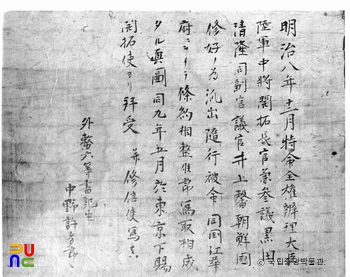 明治八年十二月特命全權辨理大臣
陸軍中將開拓長官兼參議黒田
清隆同副官議官井上馨朝鮮國
修好ノ為〆派出隨行被命同國江華
府ニ於テ條約相整之節寫取相成
タル真圖同九年五月於東京下賜
開拓使ヨリ拝受 并修信使寫真六
外務六等書記生
中野許多郎
국립중앙박물관